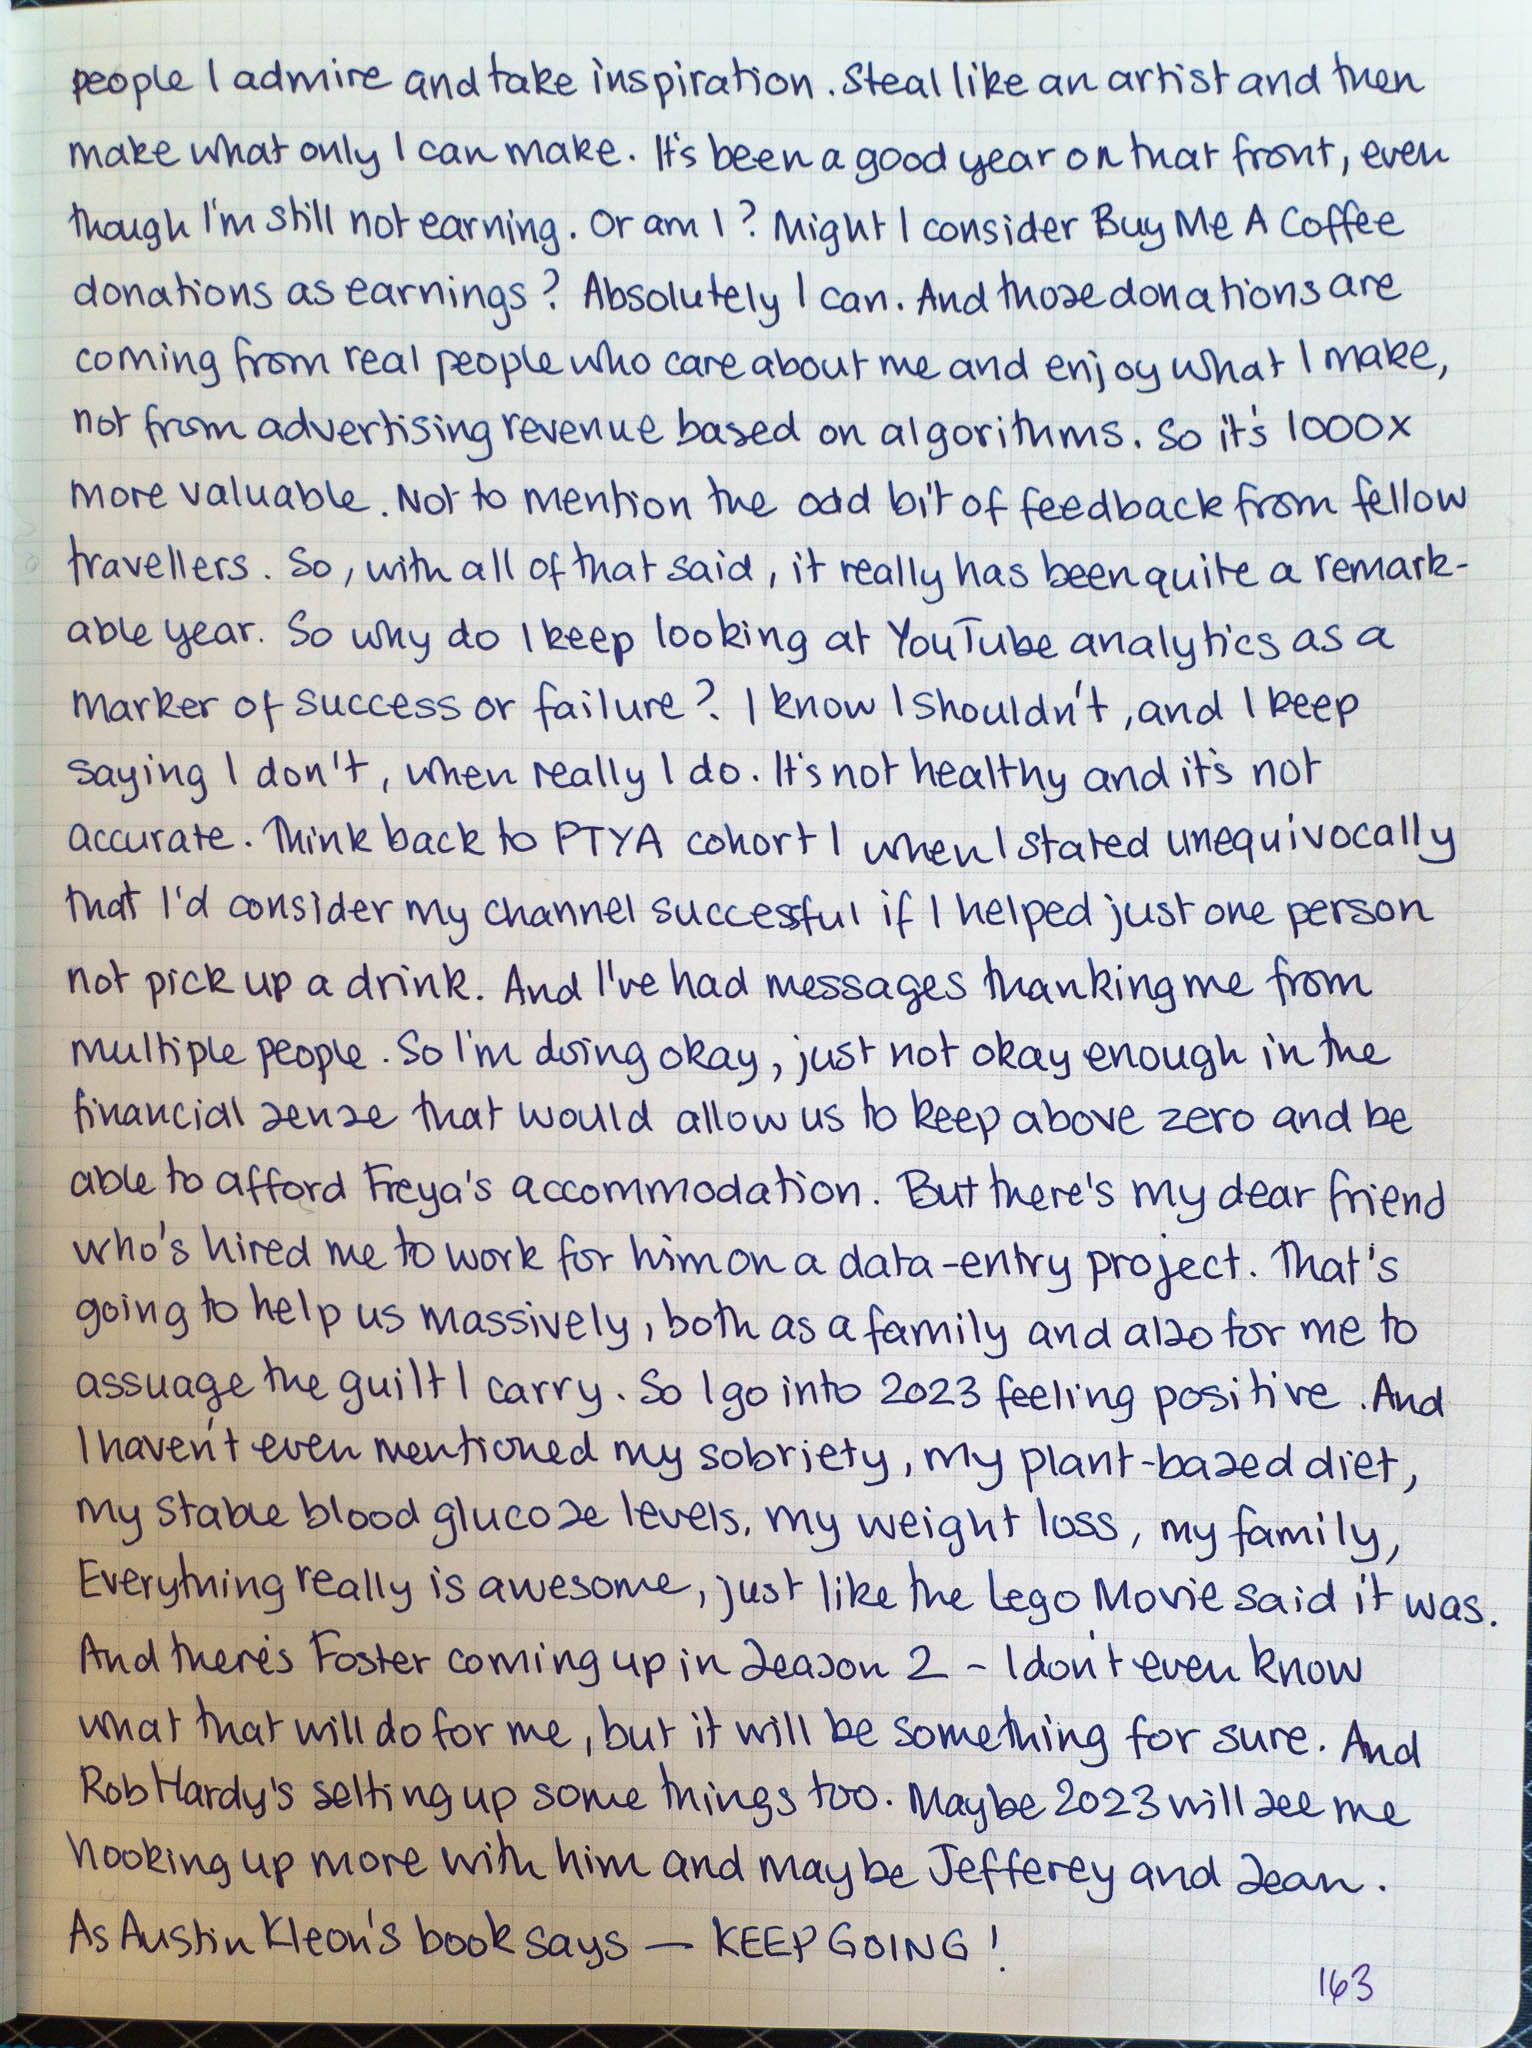 people I admire and take inspiration. Steal like an artist and then
make what only I can make. It's been a good year on that front, even
though I'm still not earning. Or am I? Might I consider Buy Me A Coffee
donations as earnings? Absolutely I can. And those donations are
coming from real people who care about me and enjoy what I make,
not from advertising revenue based on algorithms. So it's 1000x
more valuable. Not to mention the odd bit of feedback from fellow
travellers. So, with all of that said, it really has been quite a remark-
able year. So why do I keep looking at YouTube analytics as a
marker of success or failure? I know I shouldn't, and I keep
saying I don't, when really I do. It's not healthy and it's not
accurate. Think back to PTYA cohort 1 when I stated unequivocally
that I'd consider my channel successful if I helped just one person
not pick up a drink. And I've had messages thanking me from
multiple people. So I'm doing okay, just not okay enough in the
financial sense that would allow us to keep above zero and be
able to afford Freya's accommodation. But there's my dear friend
who's hired me to work for him on a data-entry project. That's
going to help us massively, both as a family and also for me to
assuage the guilt I carry. So I go into 2023 feeling positive. And
I haven't even mentioned my sobriety, my plant-based diet,
my stable blood glucose levels, my weight loss, my family,
Everything really is awesome, just like the Lego Movie said it was.
And there's Foster coming up in Season 2 - I don't even know
what that will do for me, but it will be something for sure. And
Rob Hardy's setting up some things too. Maybe 2023 will see me
hooking up more with him and maybe Jefferey and Sean.
As Austin Kleon's book says — KEEP GOING!
163